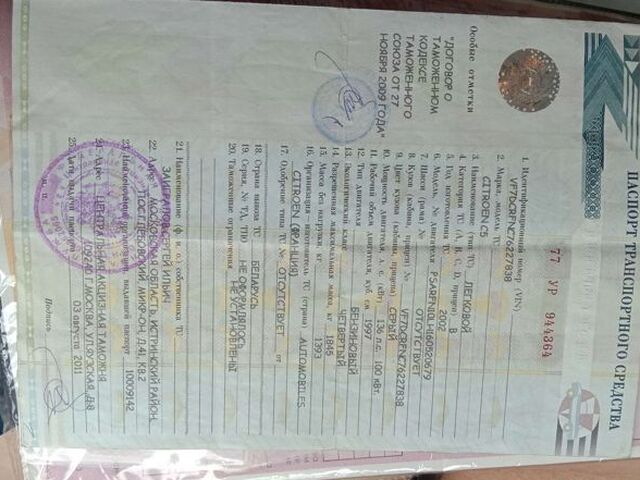 ПАСПОРТ ТРАНСПОРТНОГО СРЕДСТВА
77 УР 944364
1. Идентификационный номер (VIN) VF7DCRFNC76227838
2. Марка, модель ТС CITROEN C5
3. Наименование (тип ТС) ЛЕГКОВОЙ
4. Категория ТС (А, В, С, D, прицеп) В
5. Год изготовления ТС 2002
6. Модель, № двигателя
7. Шасси (рама) № ОТСУТСТВУЕТ
8. Кузов (кабина, прицеп) № VF7DCRFNC76227838
9. Цвет кузова (кабины, прицепа) СЕРЫЙ
10. Мощность двигателя, л. с. (кВт) 136 л.с. 100 кВт.
11. Рабочий объем двигателя, куб. см 1997
12. Тип двигателя БЕНЗИНОВЫЙ
13. Экологический класс ЧЕТВЕРТЫЙ
14. Разрешенная максимальная масса, кг 1845
15. Масса без нагрузки, кг 1393
16. Организация-изготовитель ТС (страна) AUTOMOBILES
CITROEN (ФРАНЦИЯ)
17. Одобрение типа ТС № ОТСУТСТВУЕТ от
18. Страна вывоза ТС БЕЛАРУСЬ
19. Серия, № ТД, ТПО НЕ ОФОРМЛЯЛОСЬ
20. Таможенные ограничения НЕ УСТАНОВЛЕНЫ
21. Наименование (ф. и. о.) собственника ТС
СЕРГЕЙ ИЛЬИЧ
22. Адрес МОСКОВСКАЯ ОБЛАСТЬ, ИСТРИНСКИЙ РАЙОН,
МИКР-ОН, Д.41, КВ.2
23. Наименование организации, выдавшей паспорт 10009142
ЦЕНТРАЛЬНАЯ АКЦИЗНАЯ ТАМОЖНЯ
24. Адрес 109240 Г.МОСКВА, УЛ.ЯУЗСКАЯ, Д.8
25. Дата выдачи паспорта 03 августа 2011
Подпись
М. П.
Особые отметки
"ДОГОВОР О
ТАМОЖЕННОМ
КОДЕКСЕ
ТАМОЖЕННОГО
СОЮЗА ОТ 27
НОЯБРЯ 2009 ГОДА"